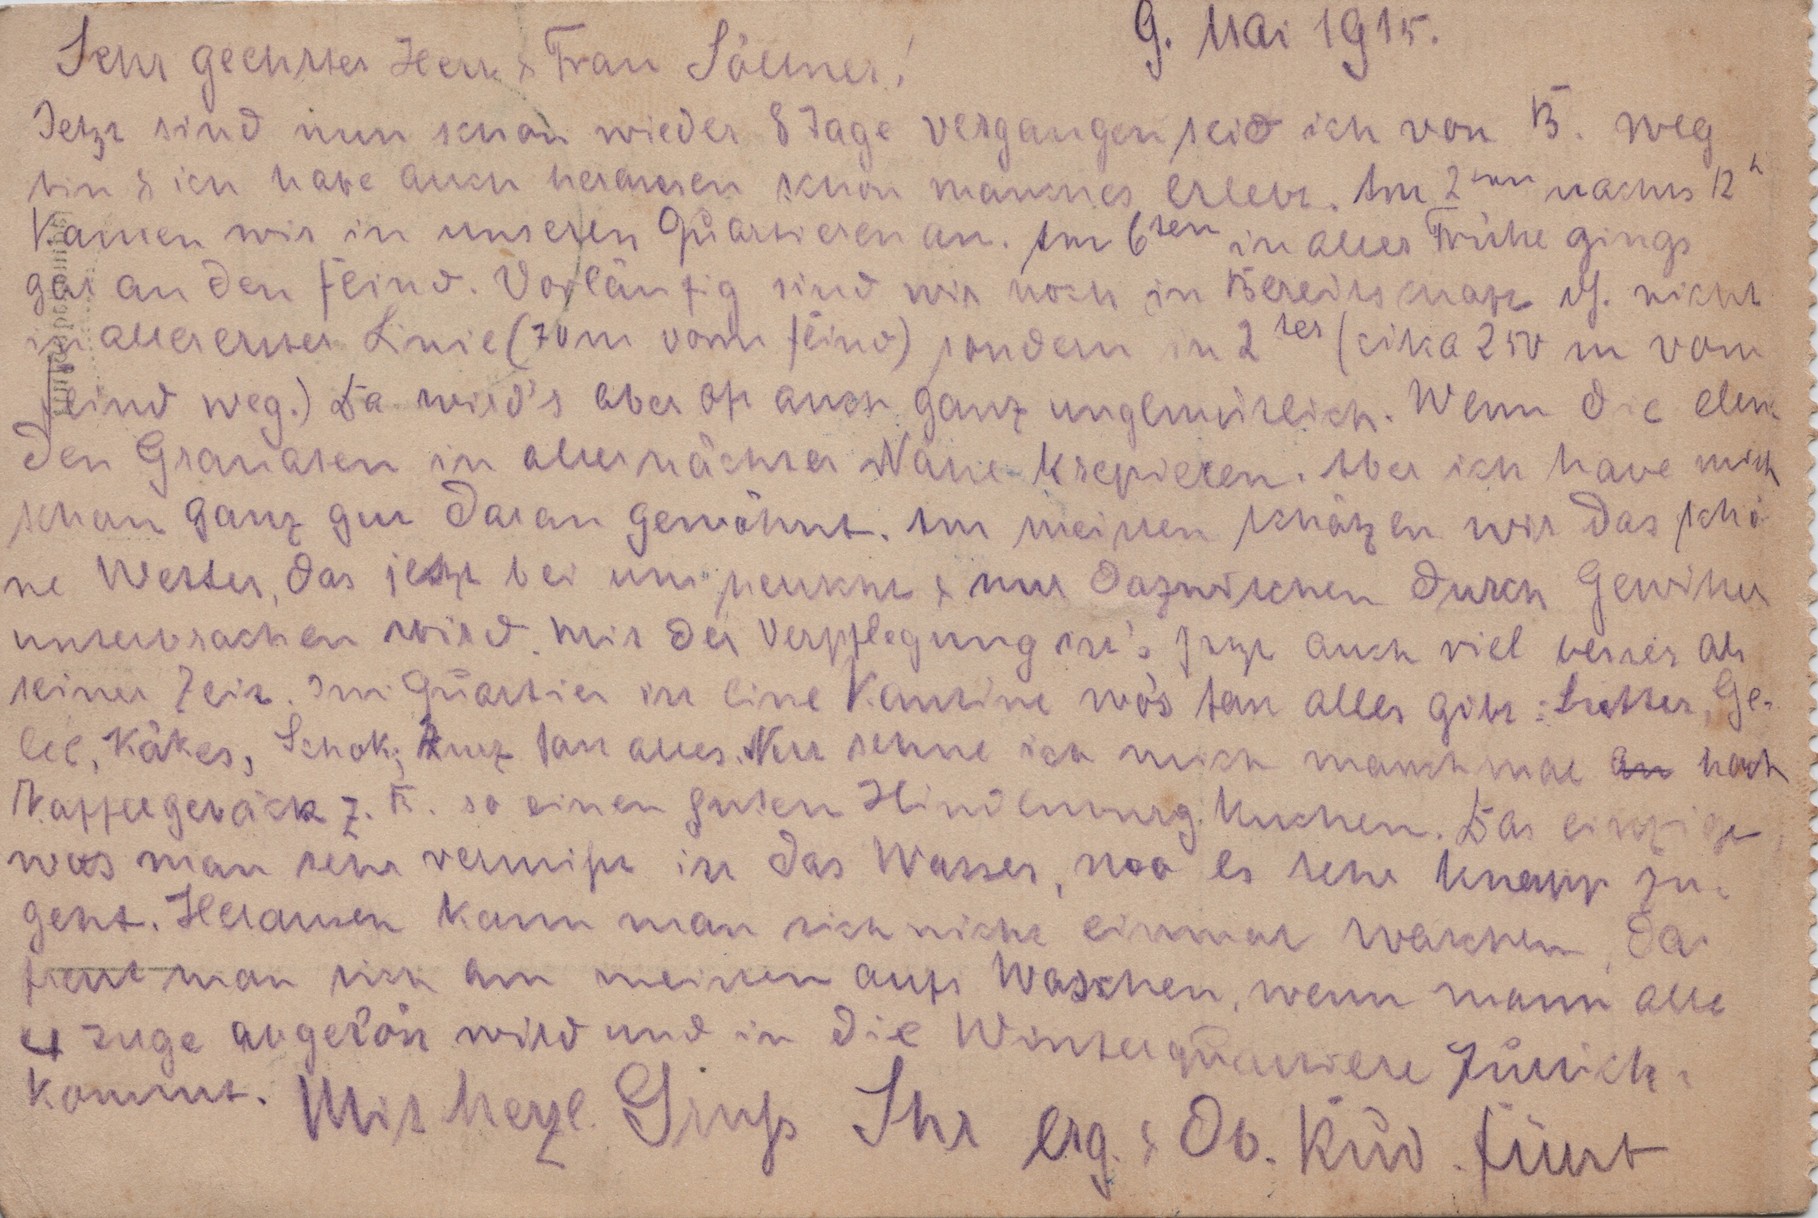 9. Mai 1915.
Sehr geehrter Herr & Frau Söllner!
Jetzt sind nun schon wieder 8 Tage vergangen seid ich von B. weg
bin & ich habe auch heraussen schon manches erlebt. Am 2ten nachts 12h
kamen wir in unseren Quartieren an. Am 6ten in aller Frühe gings
gar an den Feind. Vorläufig sind wir noch in Bereitschaft d. nicht
in allererster Linie (70 m vom Feind) sondern in 2ter (cirka 250 m vom
Feind weg.) Da wird's aber oft auch ganz ungemütlich. Wenn die elen-
den Granaten in allernächster Nähe krepieren. Aber ich habe mich
schon ganz gut daran gewöhnt. Am meisten schätzen wir das schö-
ne Wetter, das jetzt bei uns herrscht & nur dazwischen durch Gewitter
unterbrochen wird. Mit der Verpflegung ist's jetzt auch viel besser als
seiner Zeit. Im Quartier ist eine Kantine wo's fast alles gibt: Butter, Ge-
lee, Kakes, Schok; kurz fast alles. Nur sehne ich mich manchmal an nach
Kaffeegebäck z. B. so einen guten Hindenburg-Kuchen. Das einzige,
was man sehr vermißt ist das Wasser, wo es sehr knapp zu-
geht. Heraussen kann man sich nicht einmal waschen, da
freut man sich am meisten aufs Waschen, wenn mann alle
4 Tage abgelöst wird und in die Winterquartiere zurück-
kommt. Mit herzl. Gruß Ihr erg. & Ob. Rud. Fürst